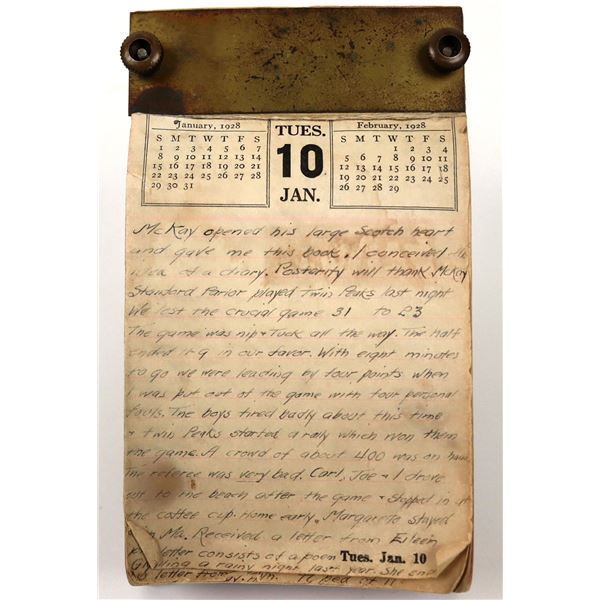 January, 1928
S M T W T F S
1 2 3 4 5 6 7
8 9 10 11 12 13 14
15 16 17 18 19 20 21
22 23 24 25 26 27 28
29 30 31
TUES.
10
JAN.
February, 1928
S M T W T F S
1 2 3 4
5 6 7 8 9 10 11
12 13 14 15 16 17 18
19 20 21 22 23 24 25
26 27 28 29
McKay opened his large Scotch heart
and gave me this book. I conceived the
idea of a diary. Posterity will thank McKay
Standard Parlor played Twin Peaks last night
We lost the crucial game 31 to 23
The game was nip & Tuck all the way. The half
ended 11 9 in our favor. With eight minutes
to go we were leading by four points when
I was put out of the game with four personal
fouls. The boys tired badly about this time
& Twin Peaks started a rally which won them
the game. A crowd of about 400 was on
The referee was very bad. Carl, Joe & I drove
out to the beach after the game & stopped in at
the coffee cup. Home early. Margarete stayed
Ma. Received a letter from Eileen
letter consists of a poem
Tues. Jan. 10
a rainy night last year. She
letter from